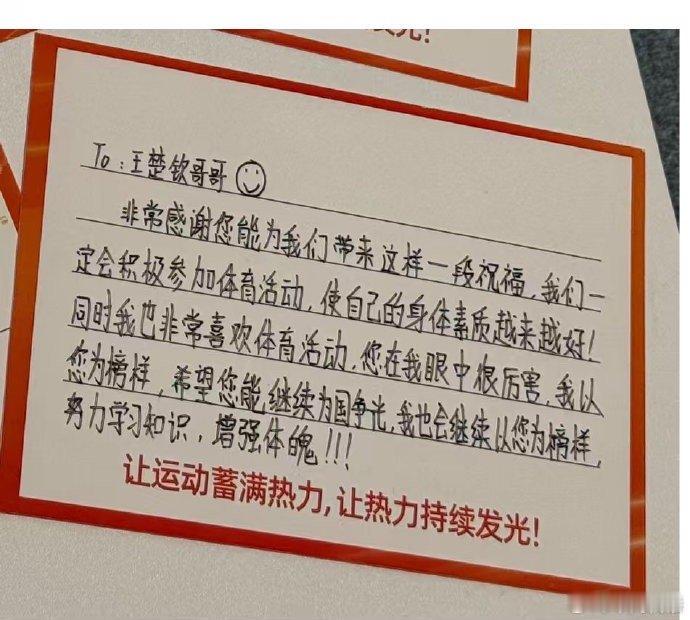 发光!
To：王楚钦哥哥
非常感谢您能为我们带来这样一段祝福，我们一
定会积极参加体育活动，使自己的身体素质越来越好！
同时我也非常喜欢体育活动，您在我眼中很厉害，我以
您为榜样，希望您能继续为国争光，我也会继续以您为榜样，
努力学习知识，增强体魄！！！
让运动蓄满热力,让热力持续发光!